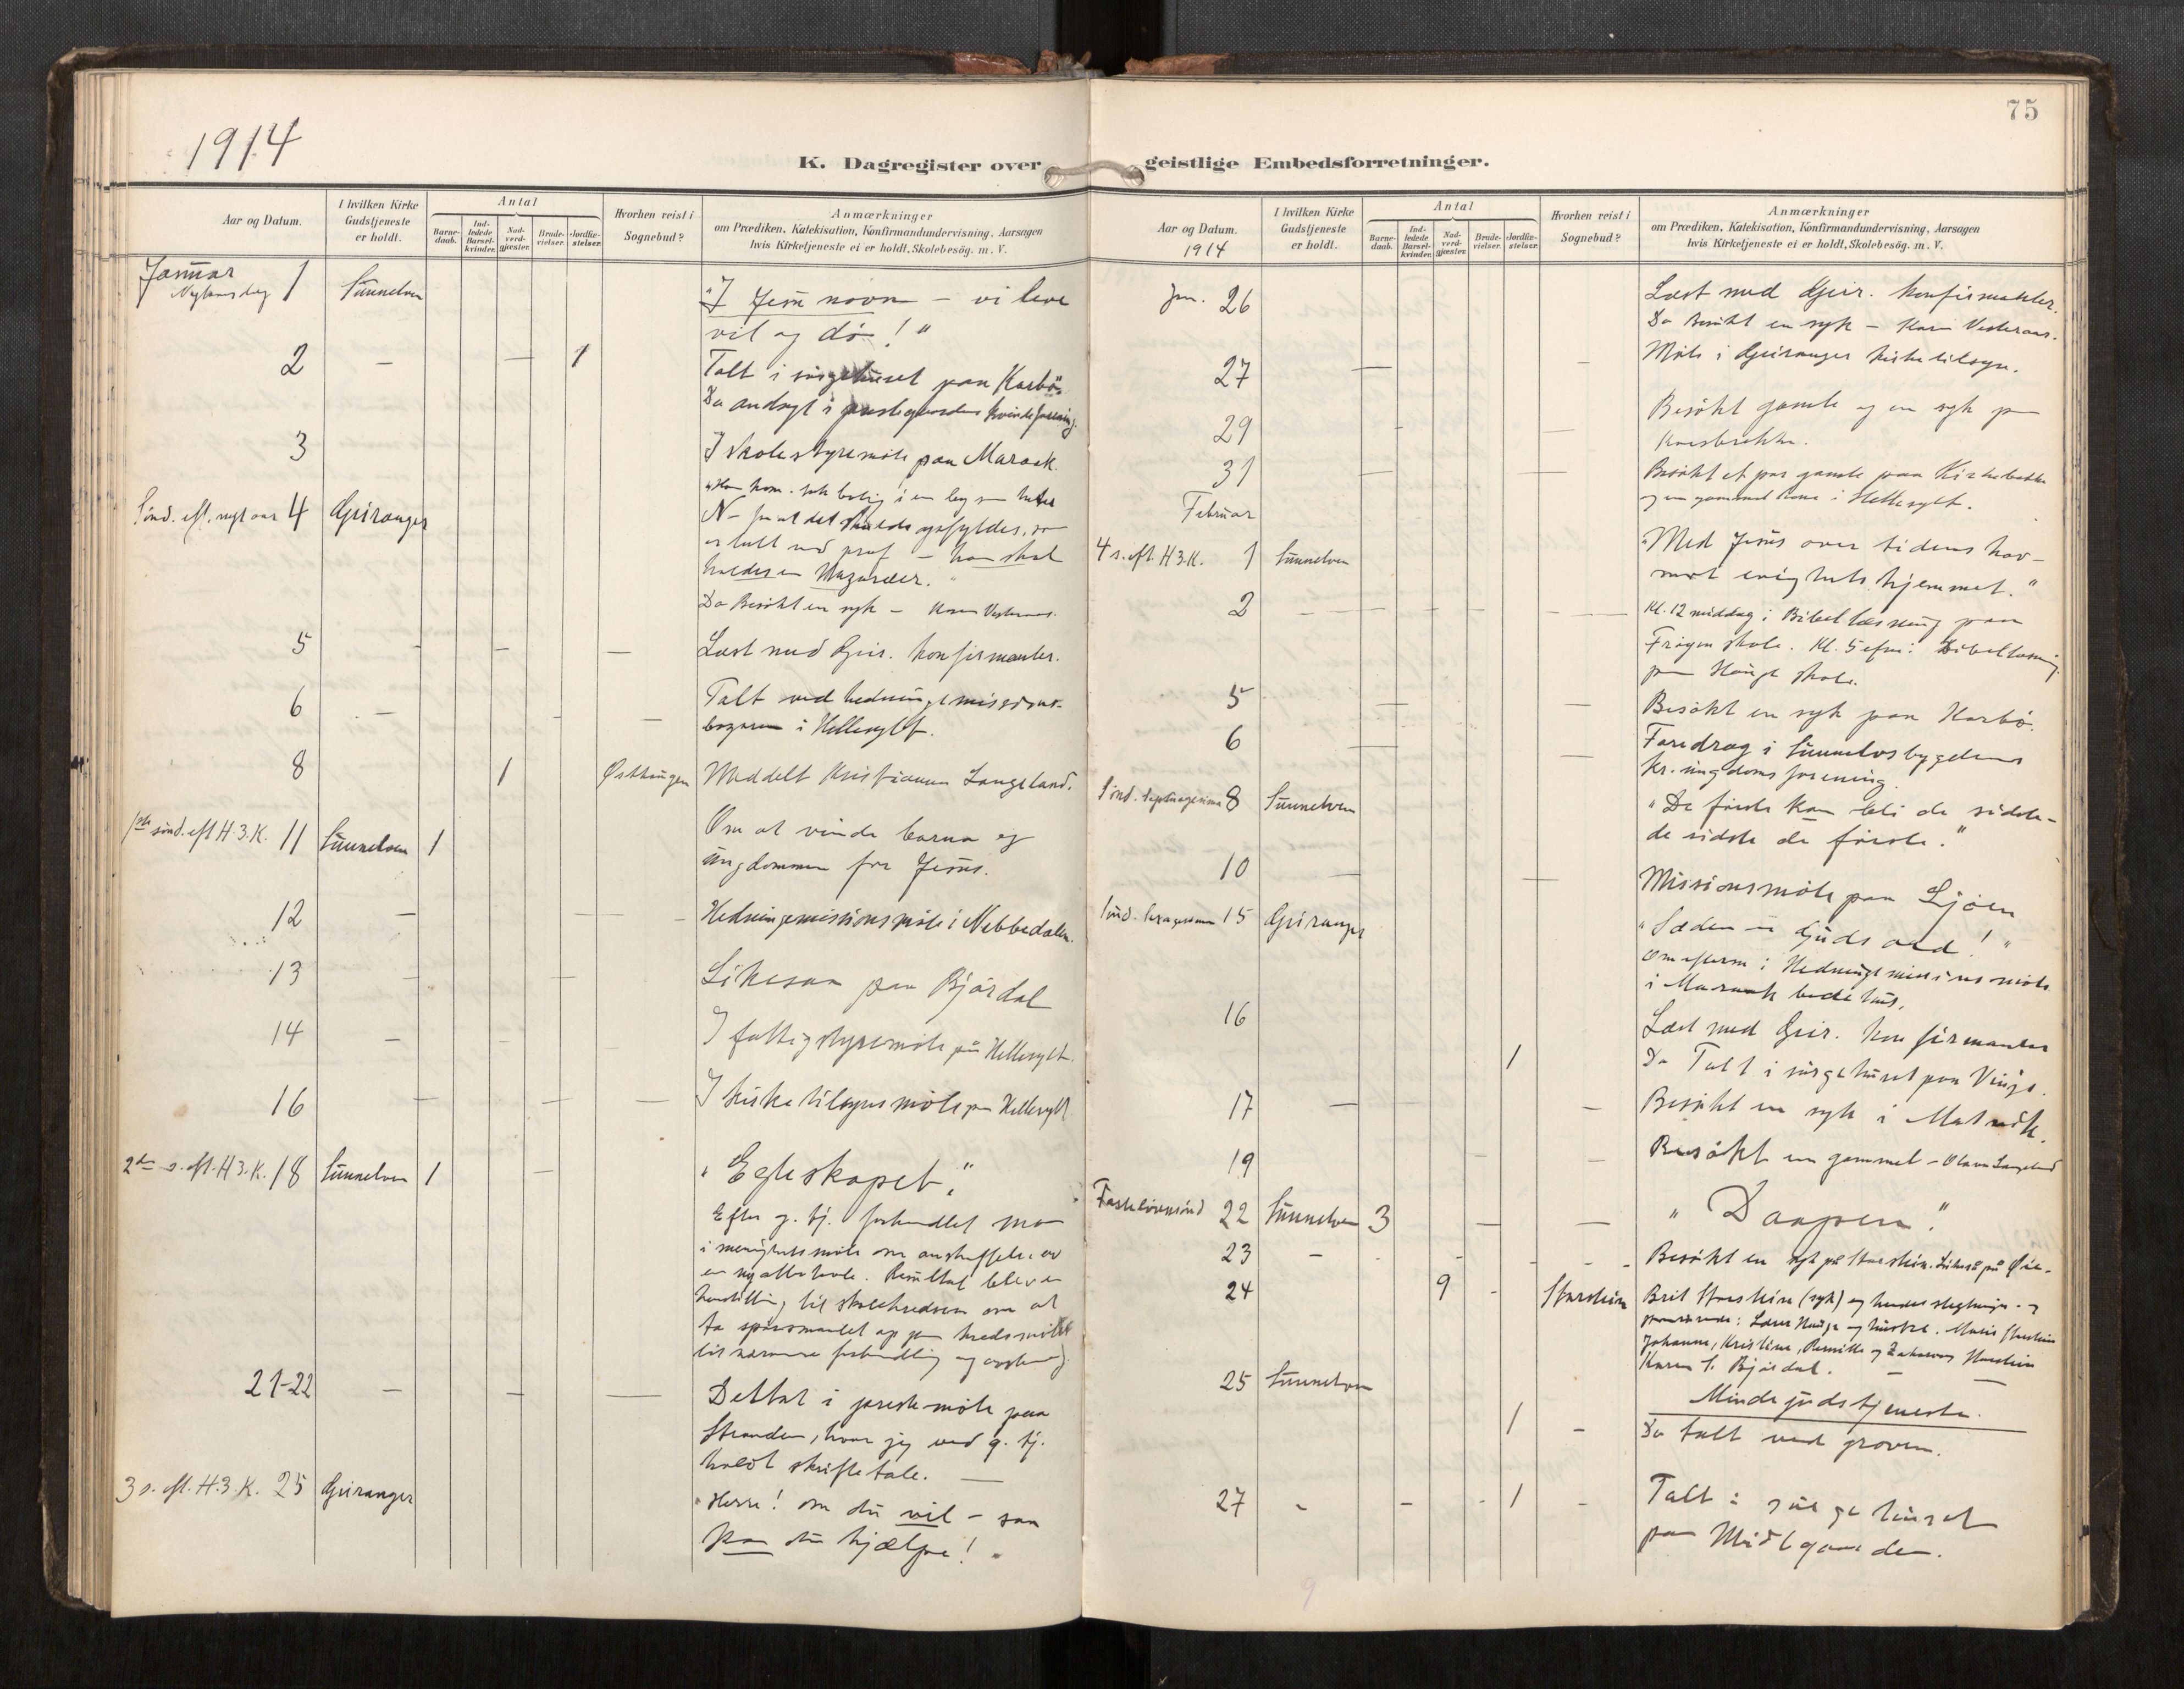 1914
75
K. Dagregister over geistlige Embedsforretninger.
Aar og Datum.
I hvilken Kirke Gudstjeneste er holdt.
Antal
Barne-daab.
Ind-ledede Barsel-kvinder.
Nad-verd-gjæster.
Brude-vielser.
Jordfæ-stelser.
Hvorhen reist i Sognebud?
Anmærkninger
om Prædiken, Katekisation, Konfirmandundervisning, Aarsagen
hvis Kirketjeneste ei er holdt, Skolebesög. m. V.
Januar
Nytaarsdag 1 Sunnelven "I Jesu navn – vi leve
vil og dø!"
2 — — 1 Talt i sørgehuset paa Karbø.
Do andagt i prestegaardens kvindeforening.
3 I skolestyremøte paa Maraak.
Sønd. eft. nytaar 4 Geiranger "Han kom
N – for at det skulde opfyldes, som
er talt ved prof – han skal
kaldes en Nazaræer."
Do Besøkt en syk – Vesteraas.
5 Læst med Geir. konfirmanter.
6 — Talt ved hedningemissions-
i Hellesylt.
8 1 Meddelt Langeland.
1ste sønd. eft H.3.K. 11 Sunnelven 1 Om at vinde barna og
ungdommen for Jesus.
12 — Hedningemissionsmøte i Nebbedalen.
13 Likesaa paa Bjørdal
14 I fattigstyremøte på Hellesylt.
16 I kirketilsynsmøte paa Hellesylt
2den s. eft. H.3.K. 18 Sunnelven 1 "Egteskapet".
Efter g. tj. forhandlet man
i menighetsmøte om anskaffelse av
en ny altertavle. Resultat blev en
henstilling til skolekredsene om at
ta spørsmaalet op paa kredsmøter
til nærmere forhandling og
21-22 — Deltat i prestemøte paa
Stranden, hvor jeg ved g. tj.
holdt skriftetale. —
3 s. eft. H.3.K. 25 Geiranger "Herre! om du vil – saa
kan du hjælpe!"
Aar og Datum.
1914
I hvilken Kirke Gudstjeneste er holdt.
Antal
Barne-daab.
Ind-ledede Barsel-kvinder.
Nad-verd-gjæster.
Brude-vielser.
Jordfæ-stelser.
Hvorhen reist i Sognebud?
Anmærkninger
om Prædiken, Katekisation, Konfirmandundervisning, Aarsagen
hvis Kirketjeneste ei er holdt, Skolebesög. m. V.
Jan. 26 Læst med Geir. konfirmanter.
Do Besøkt en syk – Vesteraas.
27 Møte i Geiranger kirketilsyn.
29 Besøkt gamle og en syk paa
31 Besøkt et par gamle paa
og en gammel kone i Hellesylt.
Februar
4 s. eft. H.3.K. 1 Sunnelven "Med Jesus over tidens hav –
mot evighetshjemmet."
2 Kl. 12 middag: Bibellæsning paa
skole. Kl. 5 efm: Bibellæsning
paa Hauge skole.
5 Besøkt en syk paa Karbø.
6 Foredrag i Sunnelvsbygdens
kr. ungdomsforening.
Sønd. Septuagesima 8 Sunnelven "De første kan bli de sidste –
de sidste de første."
10 — Missionsmøte paa Ljøen
Sønd. Sexagesima 15 Geiranger "Sæden er Guds ord!"
Om efterm: Hedningemissionsmøte
i Maraak bedehus.
16 Læst med Geir. konfirmanter
1 Do Talt i sørgehuset paa Vinje.
17 — Besøkt en syk i Matvik.
19 Besøkt en gammel – Langeland
Fastelavnsønd 22 Sunnelven 3 "Daapen".
23 — Besøkt en syk på Stavsheim.
24 9 Brit (syk) og hendes slegtninge
Bjørdal.
25 Sunnelven Mindegudstjeneste.
1 Do talt ved graven.
27 1 Talt i sørgehuset
paa Midtgaarden.
9